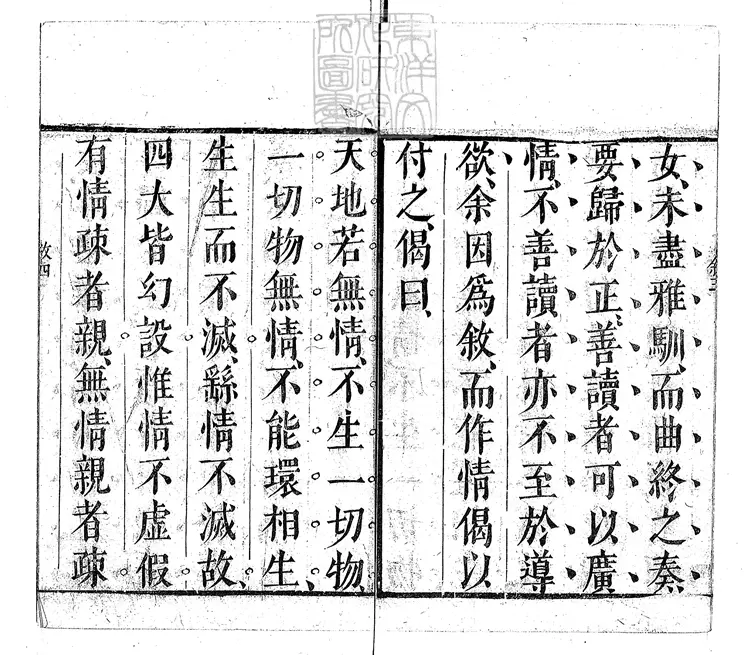 女、未盡雅馴、而曲終之奏、
要歸於正、善讀者可以廣
情、不善讀者亦不至於導
欲、余因爲敘、而作情偈以
付之、偈曰、
天地若無情、不生一切物、
一切物無情、不能環相生、
生生而不滅、繇情不滅故、
四大皆幻設惟情不虛假
有情疎者親、無情親者疎